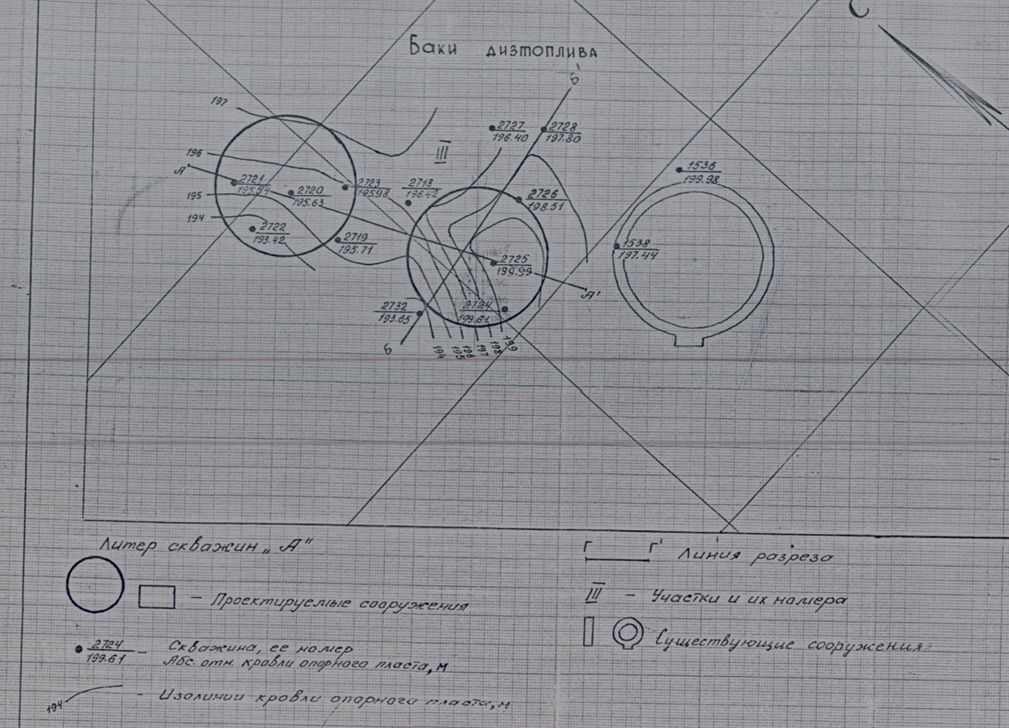 С
Баки дизтоплива
Б'
197
2727
196.40
2728
197.80
III
196
А
2721
2720
195.63
2723
195.98
2713
196.42
1536
199.98
195
2726
198.51
194
2722
193.42
2719
195.71
1538
197.44
2725
199.99
А'
2732
193.65
2724
199.61
Б
194
195
196
197
198
199
Литер скважин „А"
Г Г' Линия разреза
– Проектируемые сооружения
III – Участки и их номера
2724
199.61
– Скважина, ее номер
Абс. отм. кровли опорного пласта, м
Существующие сооружения
194 – Изолинии кровли опорного пласта, м